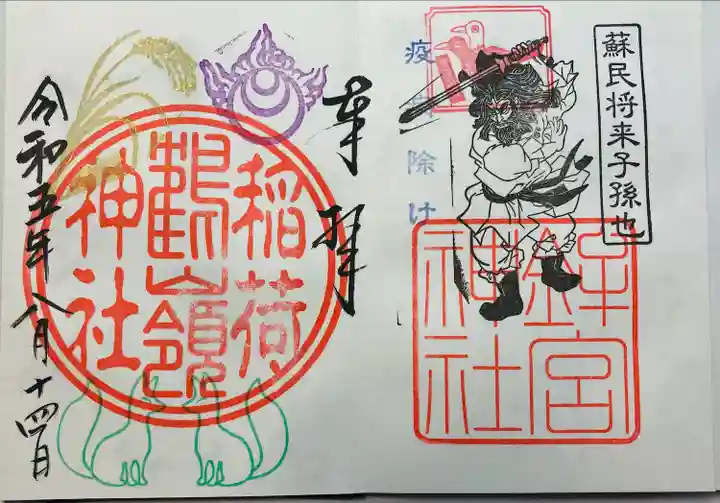 蘇民将来子孫也
疫病除け
鉾宮
神社
奉拝
稲荷
鶴嶺
神社
令和五年八月十四日